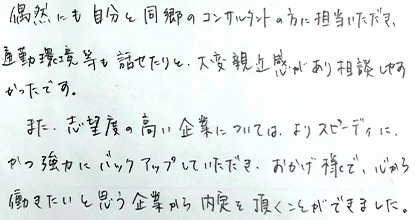 偶然にも自分と同郷のコンサルタントの方に担当いただき、
通勤環境等も話せたりと、大変親近感があり相談しやす
かったです。
また、志望度の高い企業については、よりスピーディに、
かつ強力にバックアップしていただき、おかげ様で、心から
働きたいと思う企業から内定を頂くことができました。